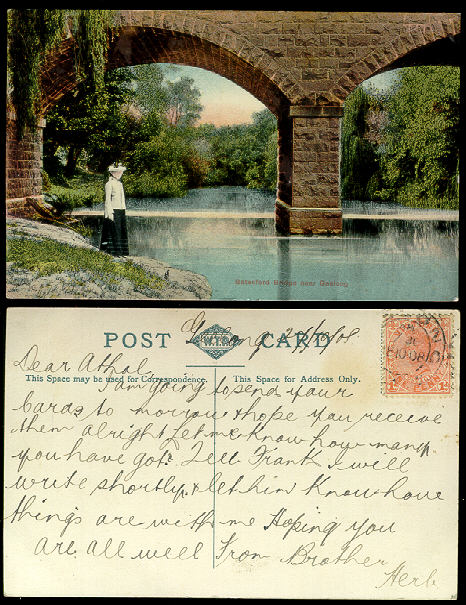 Batesford Bridge near Geelong
POST CARD
W.T.P.
Geelong
Dear Athol
This Space may be used for Correspondence.
This Space for Address Only.
I am going to send your
Cards to morrow & hope you receive
them alright. Let me know how many
you have got. Tell Frank I will
write shortly, & let him know how
things are with me Hoping you
are all well From Brother
Herb